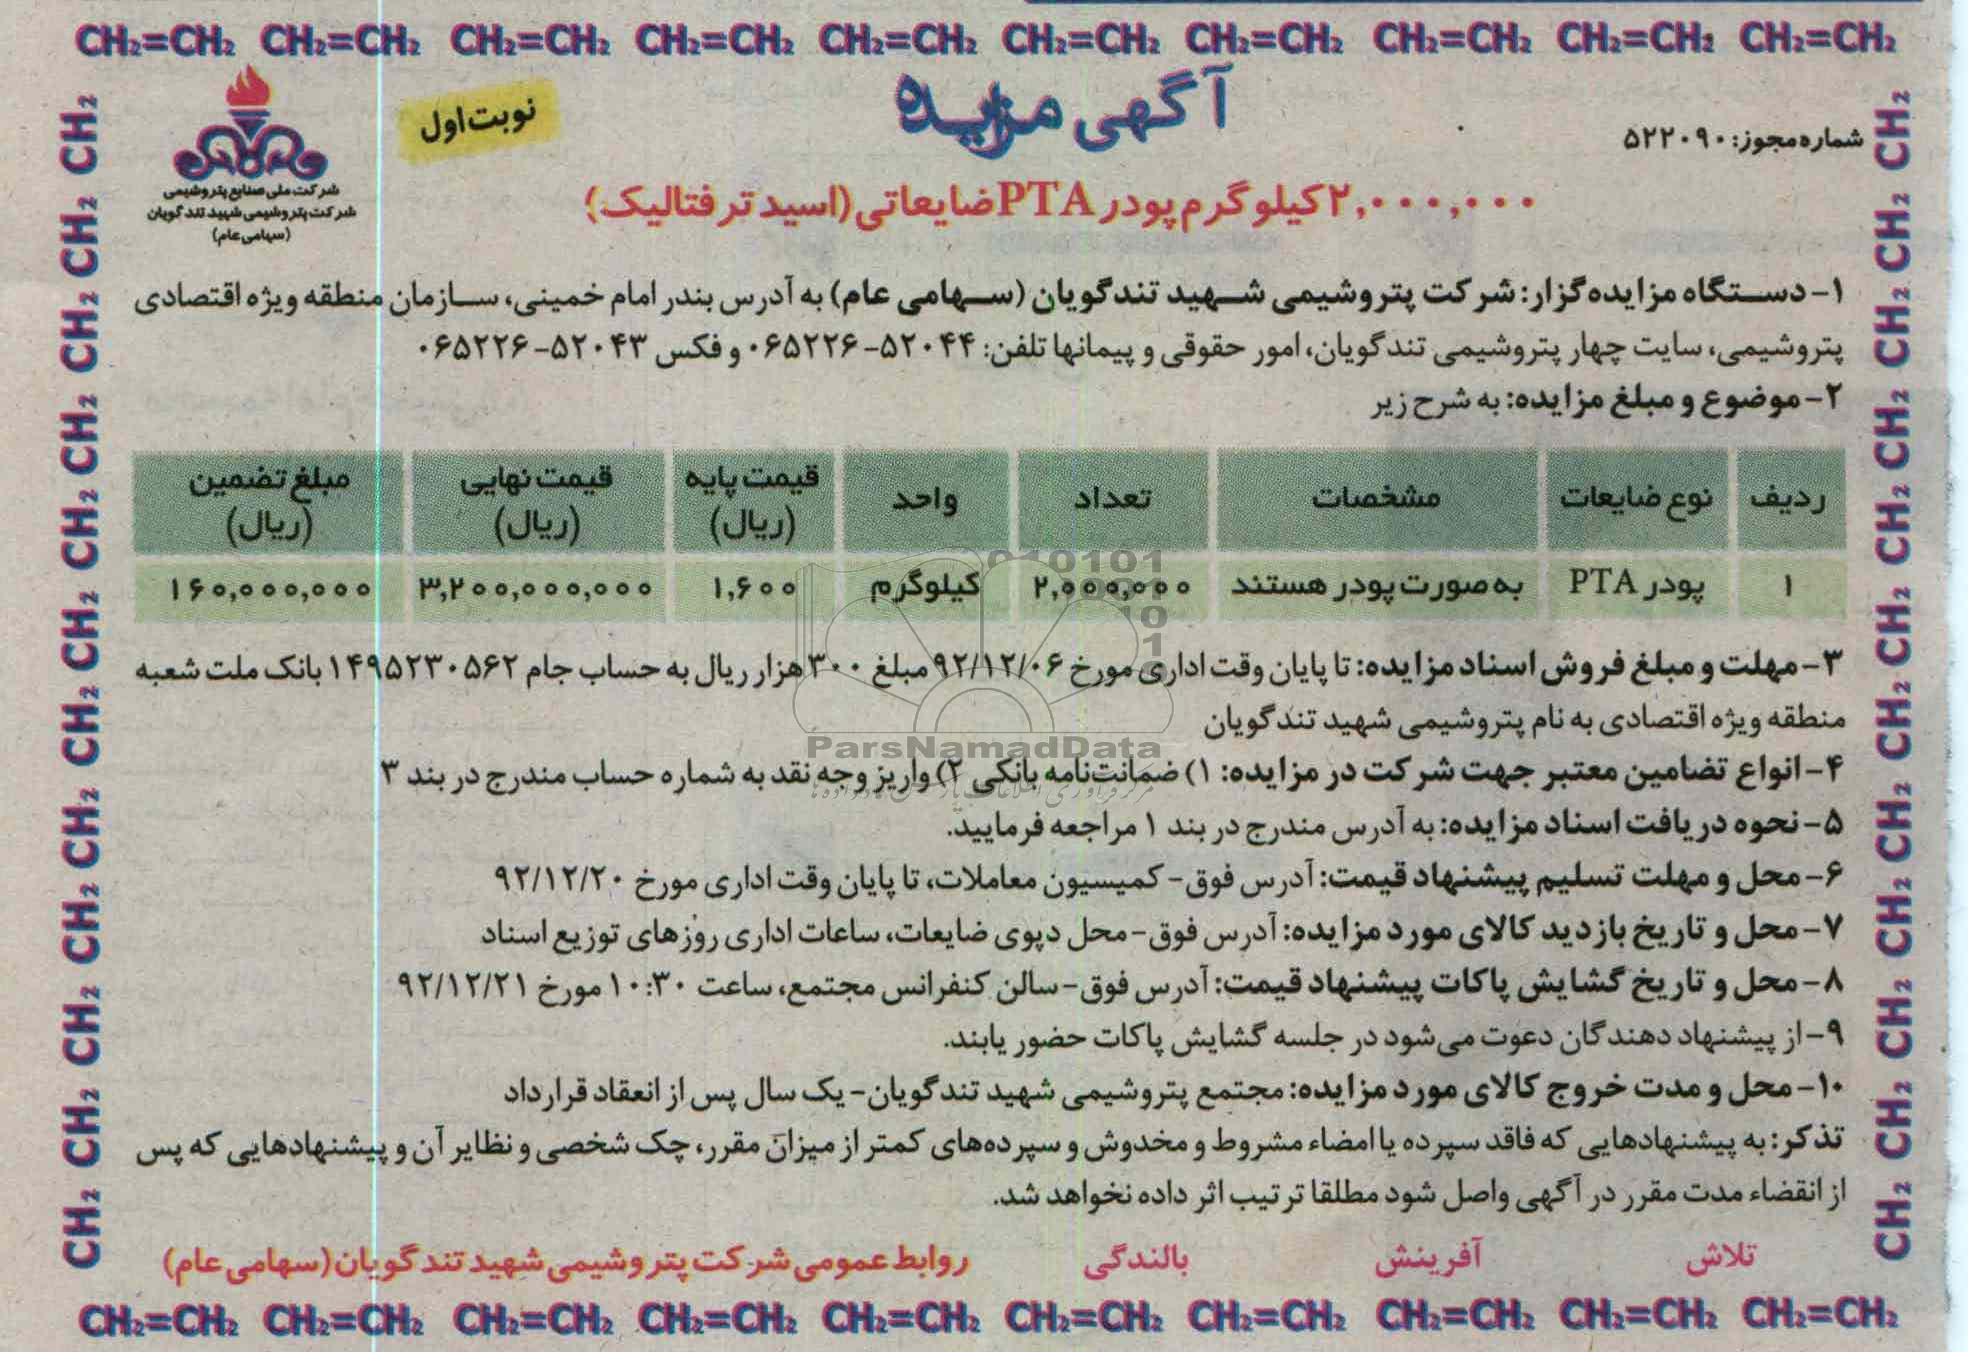 CH₂=CH₂ CH₂=CH₂ CH₂=CH₂ CH₂=CH₂ CH₂=CH₂ CH₂=CH₂ CH₂=CH₂ CH₂=CH₂ CH₂=CH₂ CH₂=CH₂
آگهی مزایده
شماره مجوز: ۵۲۲۰۹۰
نوبت اول
شرکت ملی صنایع پتروشیمی
شرکت پتروشیمی شهید تندگویان
(سهامی عام)
۲,۰۰۰,۰۰۰ کیلوگرم پودر PTA ضایعاتی (اسید ترفتالیک)
۱- دستگاه مزایده‌گزار: شرکت پتروشیمی شهید تندگویان (سهامی عام) به آدرس بندر امام خمینی، سازمان منطقه ویژه اقتصادی
پتروشیمی، سایت چهار پتروشیمی تندگویان، امور حقوقی و پیمانها تلفن: ۵۲۰۴۴-۰۶۵۲۲۶ و فکس ۵۲۰۴۳-۰۶۵۲۲۶
۲- موضوع و مبلغ مزایده: به شرح زیر
ردیف نوع ضایعات مشخصات تعداد واحد قیمت پایه (ریال) قیمت نهایی (ریال) مبلغ تضمین (ریال)
۱ پودر PTA به صورت پودر هستند ۲,۰۰۰,۰۰۰ کیلوگرم ۱,۶۰۰ ۳,۲۰۰,۰۰۰,۰۰۰ ۱۶۰,۰۰۰,۰۰۰
۳- مهلت و مبلغ فروش اسناد مزایده: تا پایان وقت اداری مورخ ۹۲/۱۲/۰۶ مبلغ ۳۰۰ هزار ریال به حساب جام ۱۴۹۵۲۳۰۵۶۲ بانک ملت شعبه
منطقه ویژه اقتصادی به نام پتروشیمی شهید تندگویان
ParsNamadData
۴- انواع تضامین معتبر جهت شرکت در مزایده: ۱) ضمانت‌نامه بانکی ۲) واریز وجه نقد به شماره حساب مندرج در بند ۳
۵- نحوه دریافت اسناد مزایده: به آدرس مندرج در بند ۱ مراجعه فرمایید.
۶- محل و مهلت تسلیم پیشنهاد قیمت: آدرس فوق- کمیسیون معاملات، تا پایان وقت اداری مورخ ۹۲/۱۲/۲۰
۷- محل و تاریخ بازدید کالای مورد مزایده: آدرس فوق- محل دپوی ضایعات، ساعات اداری روزهای توزیع اسناد
۸- محل و تاریخ گشایش پاکات پیشنهاد قیمت: آدرس فوق- سالن کنفرانس مجتمع، ساعت ۱۰:۳۰ مورخ ۹۲/۱۲/۲۱
۹- از پیشنهاد دهندگان دعوت می‌شود در جلسه گشایش پاکات حضور یابند.
۱۰- محل و مدت خروج کالای مورد مزایده: مجتمع پتروشیمی شهید تندگویان- یک سال پس از انعقاد قرارداد
تذکر: به پیشنهادهایی که فاقد سپرده یا امضاء مشروط و مخدوش و سپرده‌های کمتر از میزان مقرر، چک شخصی و نظایر آن و پیشنهادهایی که پس
از انقضاء مدت مقرر در آگهی واصل شود مطلقا ترتیب اثر داده نخواهد شد.
تلاش آفرینش بالندگی روابط عمومی شرکت پتروشیمی شهید تندگویان (سهامی عام)
CH₂=CH₂ CH₂=CH₂ CH₂=CH₂ CH₂=CH₂ CH₂=CH₂ CH₂=CH₂ CH₂=CH₂ CH₂=CH₂ CH₂=CH₂ CH₂=CH₂
CH₂ CH₂ CH₂ CH₂ CH₂ CH₂ CH₂ CH₂ CH₂ CH₂ CH₂ CH₂
CH₂ CH₂ CH₂ CH₂ CH₂ CH₂ CH₂ CH₂ CH₂ CH₂ CH₂ CH₂